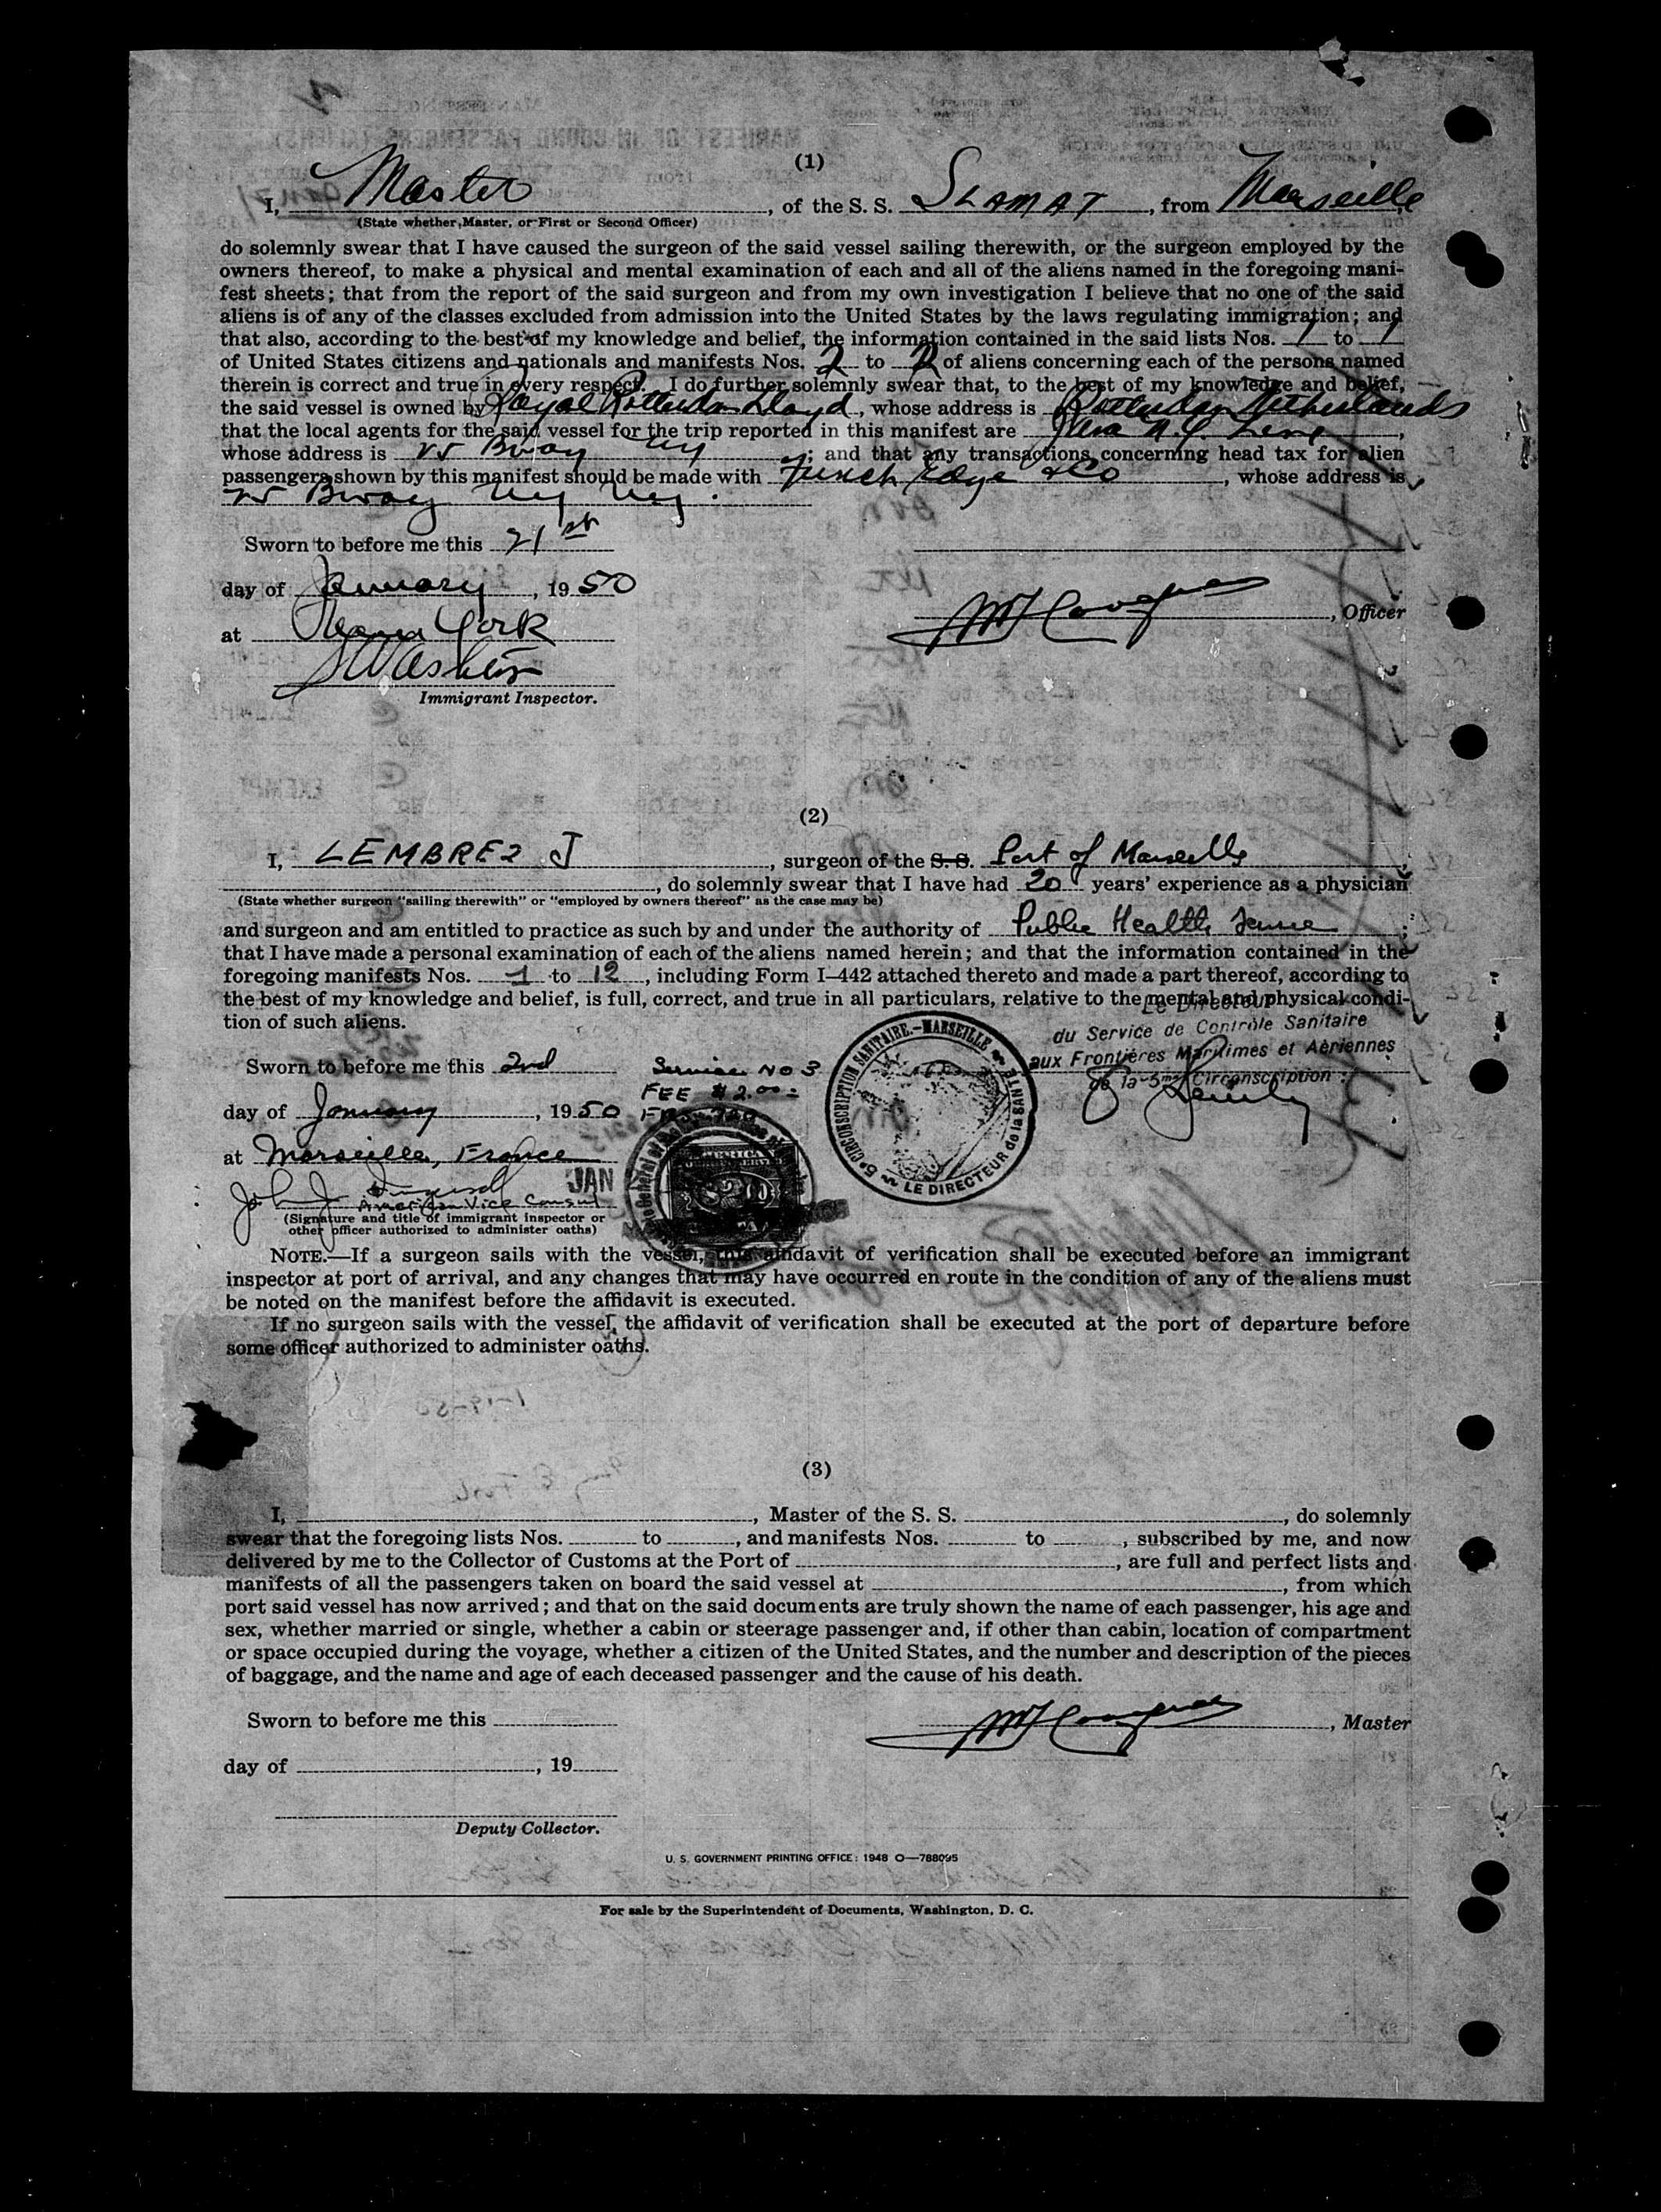 (1)
I, Master, of the S. S. SLAMAT, from Marseille
(State whether Master, or First or Second Officer)
do solemnly swear that I have caused the surgeon of the said vessel sailing therewith, or the surgeon employed by the
owners thereof, to make a physical and mental examination of each and all of the aliens named in the foregoing mani-
fest sheets; that from the report of the said surgeon and from my own investigation I believe that no one of the said
aliens is of any of the classes excluded from admission into the United States by the laws regulating immigration; and
that also, according to the best of my knowledge and belief, the information contained in the said lists Nos. 1 to 1
of United States citizens and nationals and manifests Nos. 2 to 2 of aliens concerning each of the persons named
therein is correct and true in every respect. I do further solemnly swear that, to the best of my knowledge and belief,
the said vessel is owned by Royal Rotterdam Lloyd, whose address is Rotterdam Netherlands
that the local agents for the said vessel for the trip reported in this manifest are Java N.Y. Line,
whose address is 25 Bway NY; and that any transactions concerning head tax for alien
passengers shown by this manifest should be made with Funch Edye & Co, whose address is
25 Bway NY NY.
Sworn to before me this 21st
day of January, 1950
, Officer
at New York
Immigrant Inspector.
(2)
I, LEMBREZ J, surgeon of the S. S. Port of Marseille,
, do solemnly swear that I have had 20 years' experience as a physician
(State whether surgeon "sailing therewith" or "employed by owners thereof" as the case may be)
and surgeon and am entitled to practice as such by and under the authority of Public Health;
that I have made a personal examination of each of the aliens named herein; and that the information contained in the
foregoing manifests Nos. 1 to 12, including Form I-442 attached thereto and made a part thereof, according to
the best of my knowledge and belief, is full, correct, and true in all particulars, relative to the mental and physical condi-
tion of such aliens.
Le Directeur
du Service de Contrôle Sanitaire
aux Frontières Maritimes et Aériennes
de la 5me Circonscription
5e CIRCONSCRIPTION SANITAIRE.-MARSEILLE
LE DIRECTEUR de la SANTÉ
Sworn to before me this 2nd
Service No 3
FEE $2.00
day of January, 1950
at Marseille, France
JAN
American Vice Consul
(Signature and title of immigrant inspector or
other officer authorized to administer oaths)
NOTE.—If a surgeon sails with the vessel, this affidavit of verification shall be executed before an immigrant
inspector at port of arrival, and any changes that may have occurred en route in the condition of any of the aliens must
be noted on the manifest before the affidavit is executed.
If no surgeon sails with the vessel, the affidavit of verification shall be executed at the port of departure before
some officer authorized to administer oaths.
(3)
I, , Master of the S. S. , do solemnly
swear that the foregoing lists Nos. to , and manifests Nos. to , subscribed by me, and now
delivered by me to the Collector of Customs at the Port of , are full and perfect lists and
manifests of all the passengers taken on board the said vessel at , from which
port said vessel has now arrived; and that on the said documents are truly shown the name of each passenger, his age and
sex, whether married or single, whether a cabin or steerage passenger and, if other than cabin, location of compartment
or space occupied during the voyage, whether a citizen of the United States, and the number and description of the pieces
of baggage, and the name and age of each deceased passenger and the cause of his death.
Sworn to before me this
, Master
day of , 19
Deputy Collector.
U. S. GOVERNMENT PRINTING OFFICE: 1948 O—788095
For sale by the Superintendent of Documents, Washington, D. C.